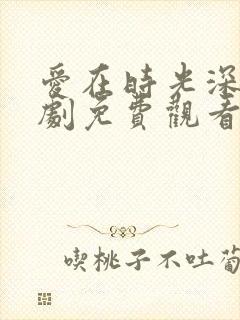 愛在時光深
劇免費觀看
喫桃子不吐葡